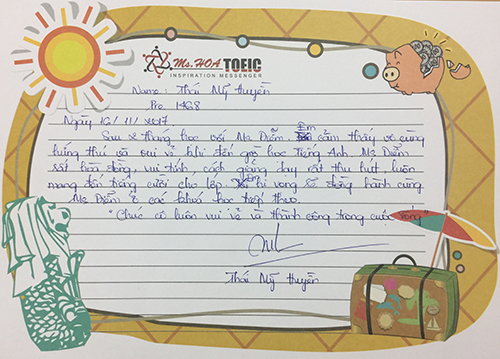 Ms.HOA TOEIC
INSPIRATION MESSENGER
Name: Thái Mỹ Huyền
Pre 1468
Ngày 16/11/2017.
Sau 2 tháng học với Ms Diễm. Em cảm thấy vô cùng
hứng thú và vui vẻ khi đến giờ học Tiếng Anh. Ms Diễm
rất hòa đồng, vui tính, cách giảng dạy rất thu hút, luôn
mang đến tiếng cười cho lớp. hi vọng sẽ đồng hành cùng
Ms Diễm ở các khoá học tiếp theo.
"Chúc cô luôn vui vẻ và thành công trong cuộc sống"
Thái Mỹ Huyền